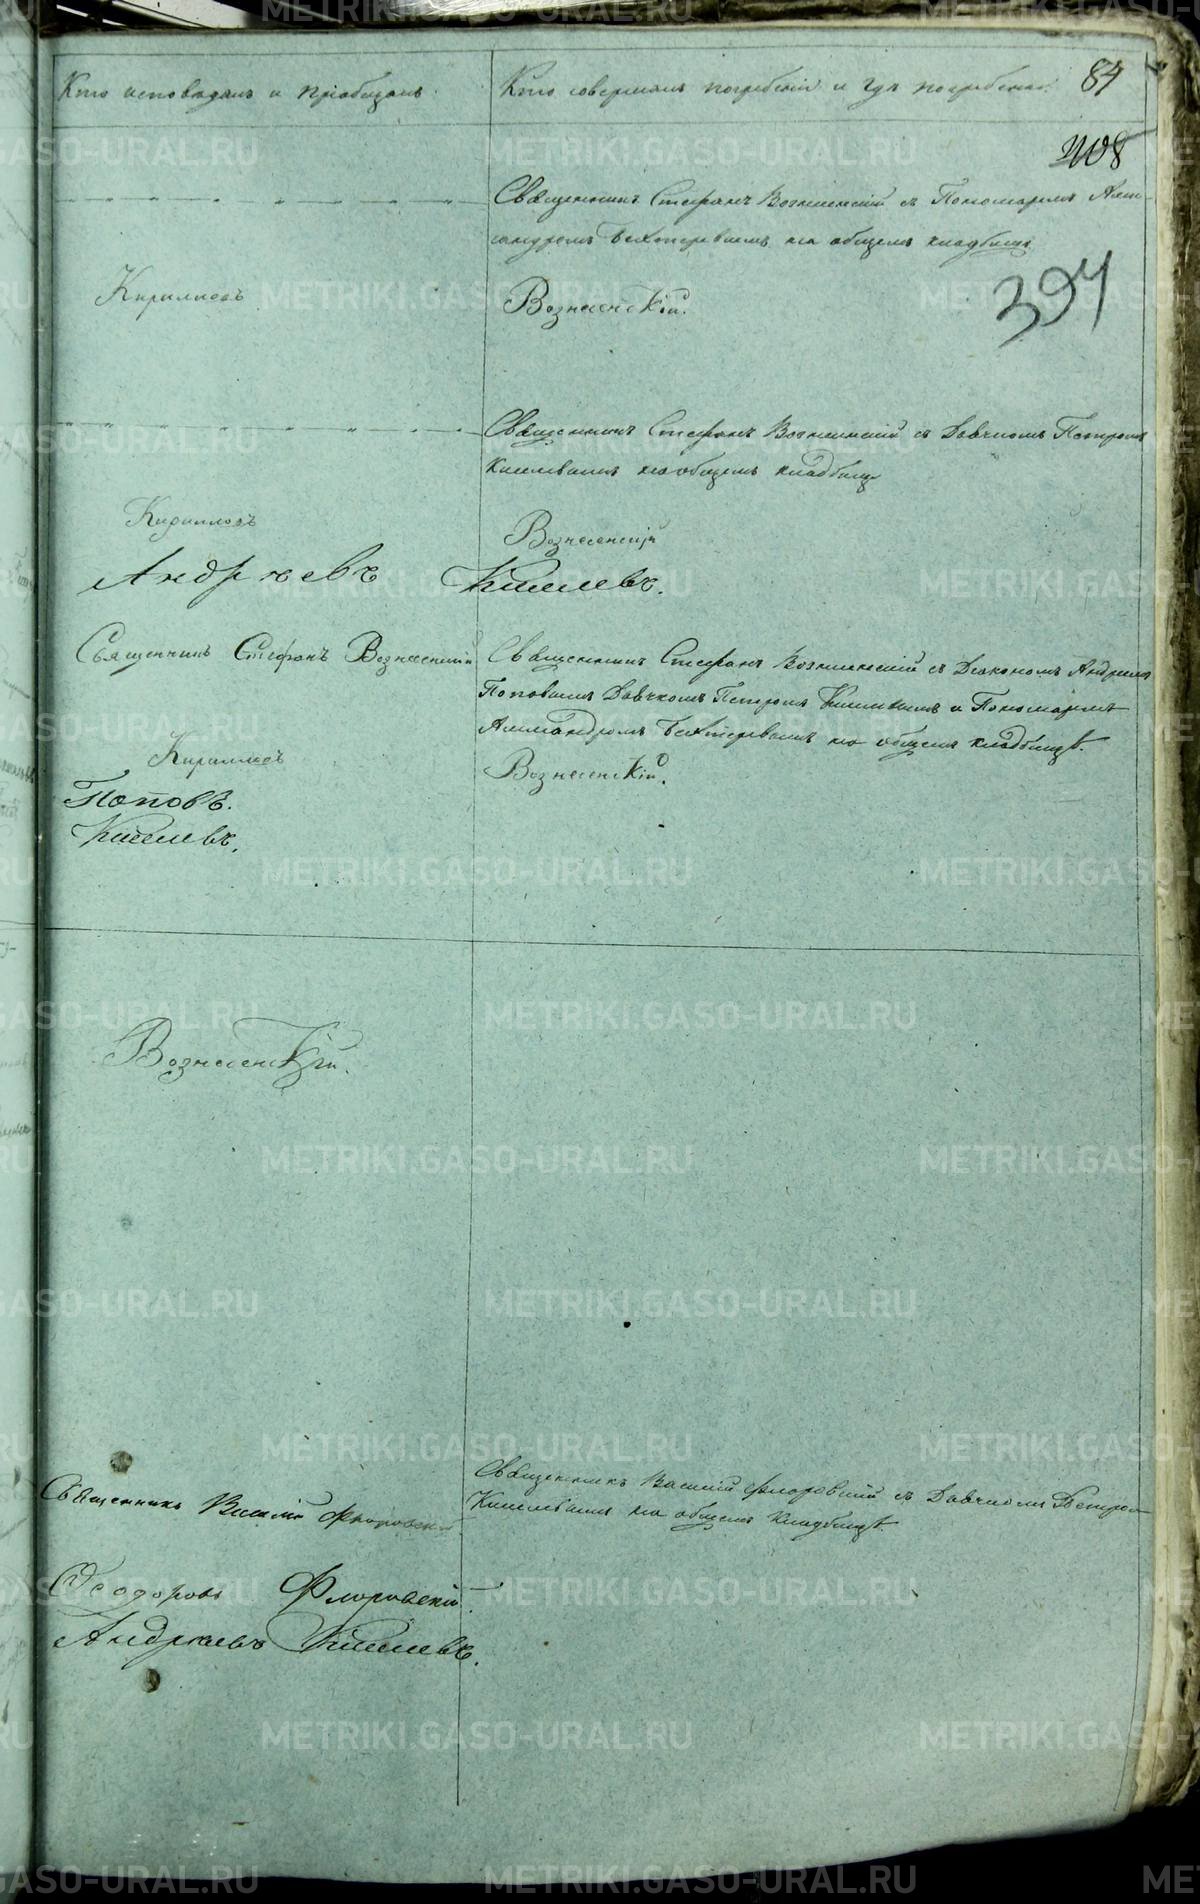 Кто исповѣдалъ и пріобщалъ.
Кто совершалъ погребеніе и гдѣ погребены.
84
408
Священникъ Стефанъ Вознесенскій съ Пономаремъ Алек-
сандромъ Бехтеревымъ на общемъ кладбищѣ
Кирилловъ
Вознесенскій.
397
Священникъ Стефанъ Вознесенскій съ Дьячкомъ Петромъ
Киселевымъ на общемъ кладбищѣ
Кирилловъ
Вознесенскій
Андреевъ Киселевъ.
Священникъ Стефанъ Вознесенскій
Священникъ Стефанъ Вознесенскій съ Діакономъ Андреемъ
Поповымъ Дьячкомъ Петромъ Киселевымъ и Пономаремъ
Александромъ Бехтеревымъ на общемъ кладбищѣ.
Кирилловъ
Вознесенскій.
Поповъ.
Киселевъ.
Вознесенскій.
Священникъ Василій Флоровскій
Священникъ Василій Флоровскій съ Дьячкомъ Петром
Киселевымъ на общемъ кладбищѣ.
Ѳеодоровъ Флоровскій.
Андреевъ Киселевъ.
METRIKI.GASO-URAL.RU